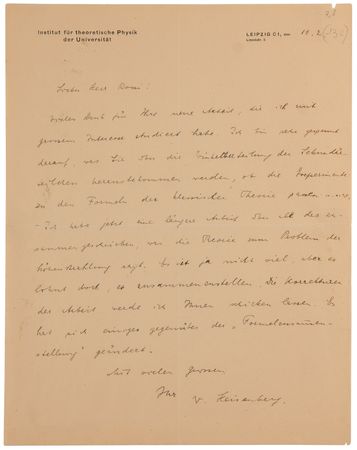 Institut für theoretische Physik
der Universität
LEIPZIG C 1, den 10.2.(32)
Linnéstr. 5
Lieber Herr Rossi!
Vielen Dank für Ihre neue Arbeit, die ich mit
grossem Interesse studiert habe. Ich bin sehr gespannt
darauf, was Sie über die Winkelverteilung der Sekundär-
herausbekommen werden, ob die Experimente
zu den Formeln der klassischen Theorie passen
- Ich habe jetzt eine längere Arbeit über all das
zusammengeschrieben, was die Theorie zum Problem der
Höhenstrahlung sagt. Es ist ja nicht viel, aber es
lohnt doch, es zusammenzustellen. Die Korrekturen
der Arbeit werde ich Ihnen schicken lassen. Es
hat sich einiges gegenüber der „Formelzusammen-
stellung" geändert.
Mit vielen Grüssen
Ihr W. Heisenberg.